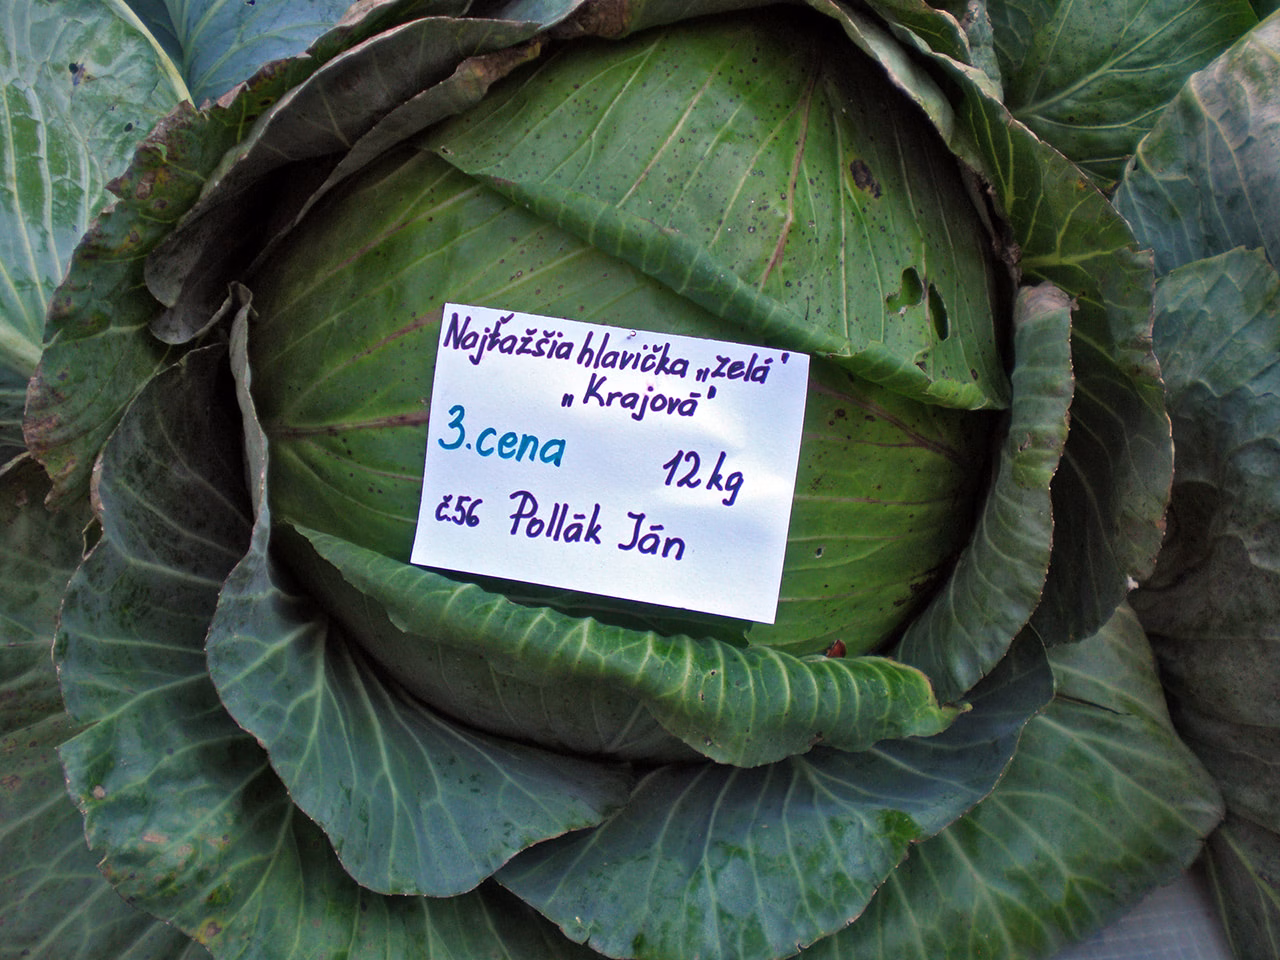 Najťažšia hlavička „zelá"
„Krajová"
3.cena
12kg
č.56 Pollák Ján